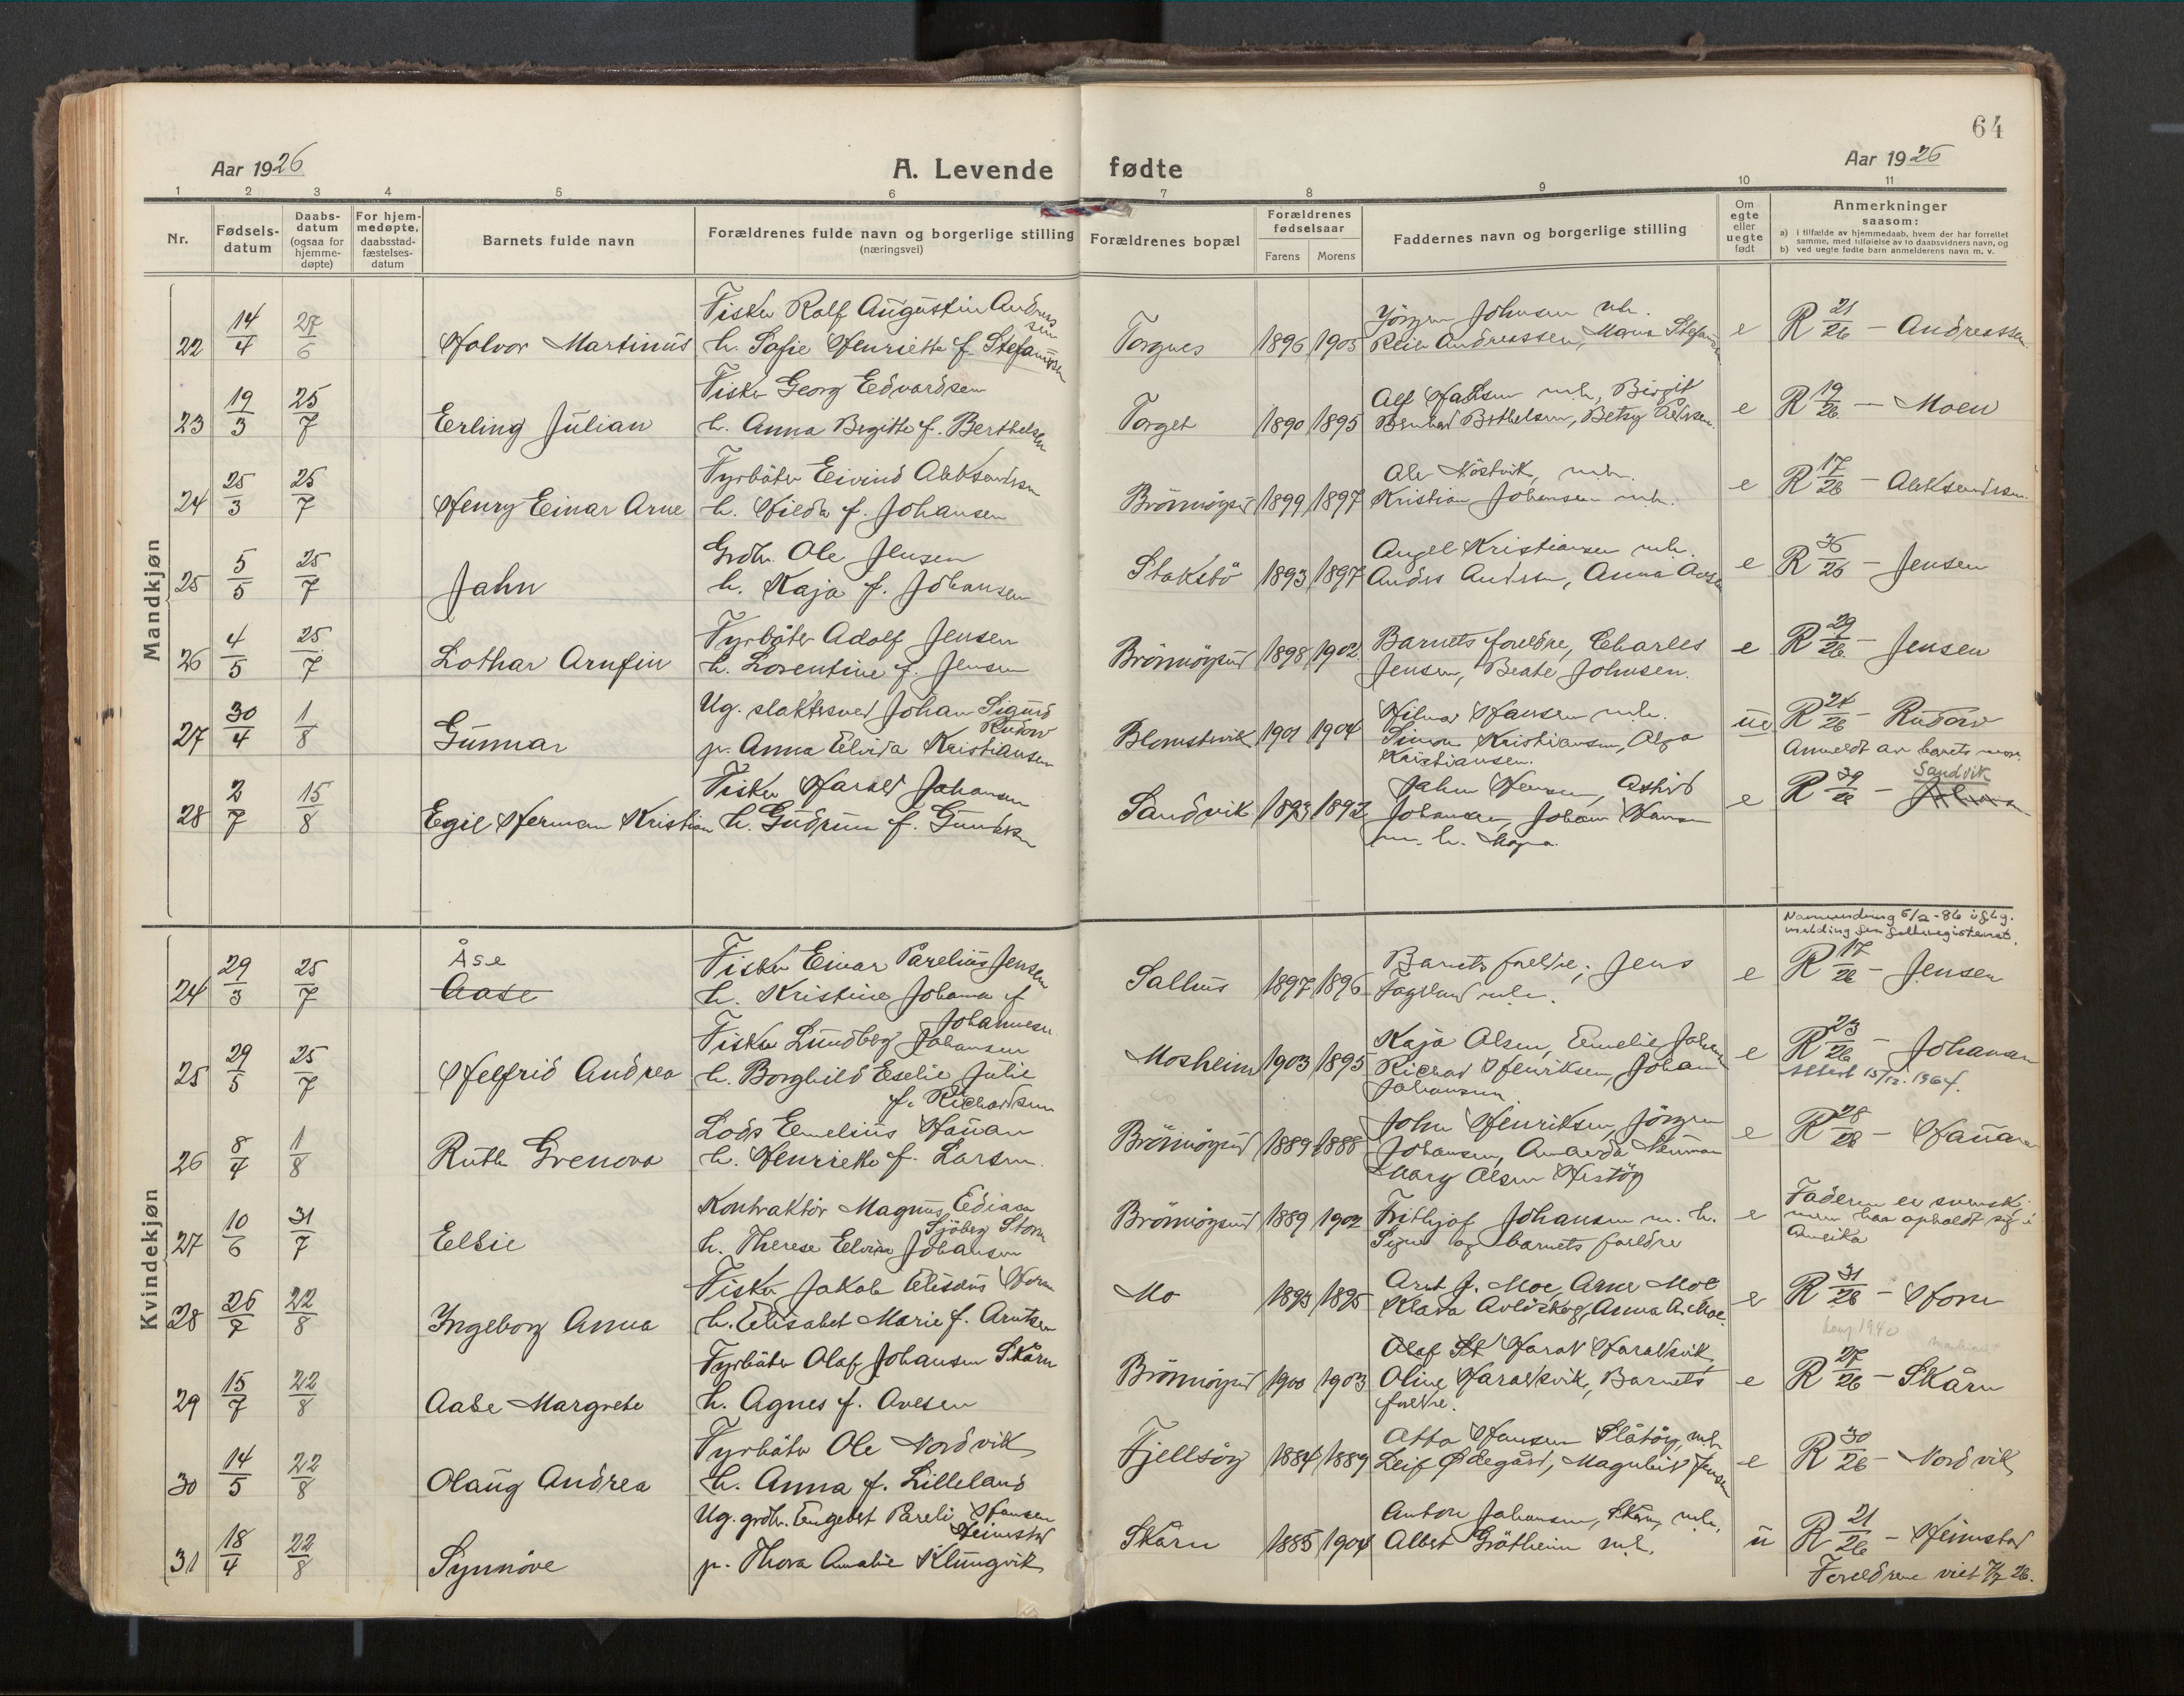 64
Aar 1926
A. Levende fødte
Aar 1926
1 2 3 4 5 6 7 8 9 10 11
Nr.
Fødsels-
datum
Daabs-
datum
(ogsaa for
hjemme-
døpte)
For hjem-
medøpte,
daabsstad-
fæstelses-
datum
Barnets fulde navn
Forældrenes fulde navn og borgerlige stilling
(næringsvei)
Forældrenes bopæl
Forældrenes
fødselsaar
Farens Morens
Faddernes navn og borgerlige stilling
Om
egte
eller
uegte
født
Anmerkninger
saasom:
a) i tilfælde av hjemmedaab, hvem der har forrettet
samme, med tilføielse av to daabsvidners navn, og
b) ved uegte fødte barn anmelderens navn m. v.
Mandkjøn
22 14/4 27/6 Halvor Martinus
Fisker Rolf Augustin Andreassen
h. Sofie Henriette f. Stefanussen
Torgnes 1896 1905
Jörgen Johnsen m.h.
Andreassen, Maria
e R 21/26 - Andreassen
23 19/3 25/7 Erling Julian
Fisker Georg Edvardsen
h. Anna Birgitte f. Berthelsen
Torget 1890 1895
Alf Hansen m.h., Birgit
Bernhard Berthelsen, Betsy
e R 19/26 - Moen
24 25/3 25/7 Henry Einar Arne
Fyrbøter Eivind Aleksandersen
h. Hilda f. Johansen
Brönnöysund 1899 1897
Ole Nöstvik, m.h.
Kristian Johansen m.h.
e R 17/26 - Aleksandersen
25 5/5 25/7 Jahn
Grdbr. Ole Jensen
h. Kaja f. Johansen
Stoksbö 1893 1897
Angel Kristiansen m.h.
Anders Andersen, Anna
e R 36/26 - Jensen
26 4/5 25/7 Lothar Arnfin
Fyrbøter Adolf Jensen
h. Lorentine f. Jensen
Brönnöysund 1898 1902
Barnets foreldre, Charles
Jensen, Beate Johnsen.
e R 29/26 - Jensen
27 30/4 1/8 Gunnar
Ug. slaktersvend Johan Sigurd
Rudow
p. Anna Elvida Kristiansen
Blomstervik 1901 1904
Hilmar Hansen m.h.
Simon Kristiansen, Olga
Kristiansen.
ue R 24/26 - Rudow
Anmeldt av barnets mor.
28 2/7 15/8 Egil Herman Kristian
Fisker Harald Johansen
h. Gudrun f. Gundersen
Sandvik 1893 1892
Jahn Hansen, Astrid
Johansen, Johan Hansen
m. h. Magna
e R 39/26 - Sandvik
Kvindekjøn
Navneending 6/2-86 iflg.
melding fra folkeregisteret.
24 29/3 25/7 Åse
Aase
Fisker Einar Parelius Jensen
h. Kristine Johanna f.
Johannesen
Salhus 1897 1896
Barnets foreldre, Jens
Fagerland m.h.
e R 17/26 - Jensen
25 29/5 25/7 Helfrid Andrea
Fisker Lundberg Johansen
h. Borghild Eselie Julie
f. Richardsen
Mosheim 1903 1895
Kaja Olsen, Emelie Johansen
Richard Henriksen, Johan
Johansen.
e R 23/26 - Johansen
attest 15/12. 1964.
26 8/4 1/8 Ruth Grenova
Lods Emelius Hauan
h. Henriette f. Larsen.
Brönnöysund 1889 1888
John Henriksen, Jörgen
Johansen, Amanda
Mary Olsen Hestöy
e R 28/26 - Hauan
27 10/6 31/7 Elsie
Kontraktör Magnus Edian
Sjöberg Storm
h. Therese Elvina Johansen
Brönnöysund 1889 1902
Frithjof Johansen m. h.
Signe og barnets foreldre
e Faderen er svensk
men har opholdt sig i
Amerika
28 26/7 22/8 Ingeborg Anna
Fisker Jakob Elisæus Horn
h. Elisabet Marie f. Arntsen
Mo 1893 1895
Arnt J. Moe, Arne Moe
Klara, Anna A. Moe.
e R 31/26 - Horn
29 15/7 22/8 Aase Margrete
Fyrbøter Olaf Johansen Skårn
h. Agnes f. Ovesen
Brönnöysund 1900 1903
Olaf Harald Haraldsvik,
Oline Haraldsvik, Barnets
foreldre.
e R 27/26 - Skårn
30 14/5 22/8 Olaug Andrea
Fyrbøter Ole Nordvik
h. Anna f. Lilleland
Fjellsöy 1884 1889
Otto Hansen Slåtöy, m.h.
Leif Ødegård, Maghild Jensen
e R 30/26 - Nordvik
31 18/4 22/8 Synnöve
Ug. grdbr. Engebert Pareli Hansen
Heimstad
p. Thora Amalie Klungvik
Skårn 1885 1904
Anton Johansen, Skårn, m.h.
Albert Grötheim m.h.
u R 21/26 - Heimstad
Foreldrene viet 7/7 26.